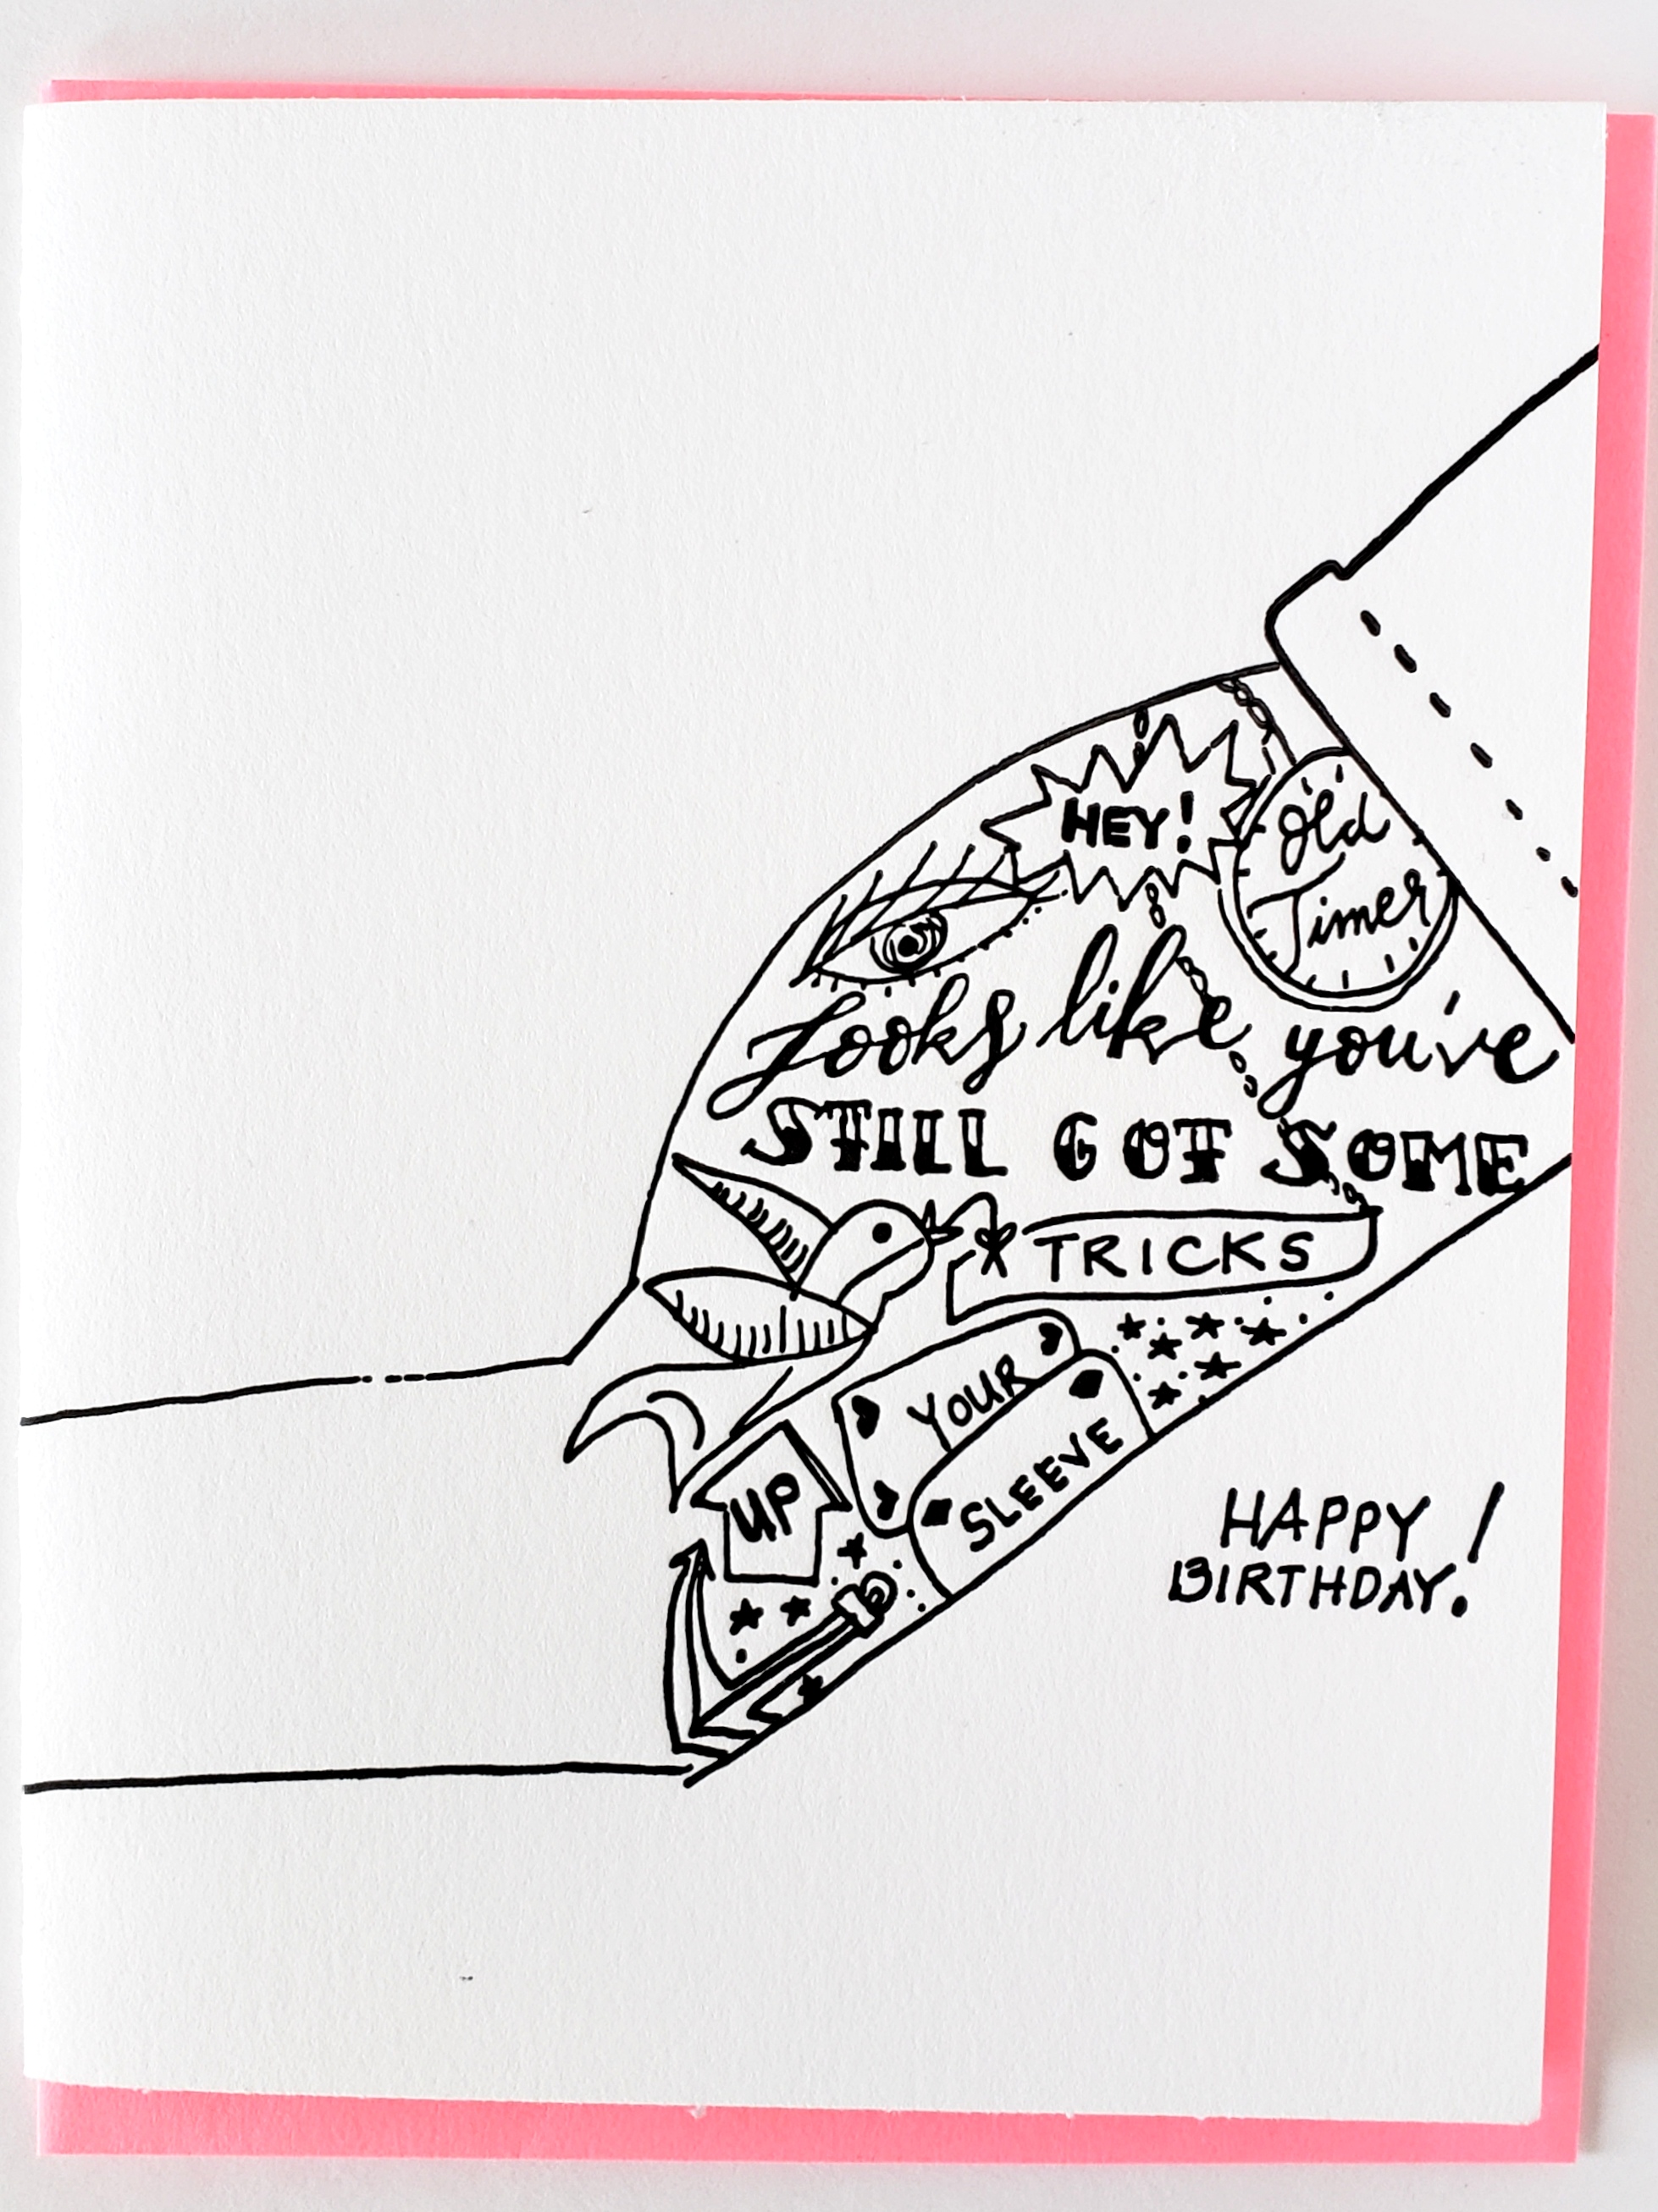 HEY!
Old
Timer
Looks like you've
STILL GOT SOME
TRICKS
UP
YOUR
SLEEVE
HAPPY
BIRTHDAY!